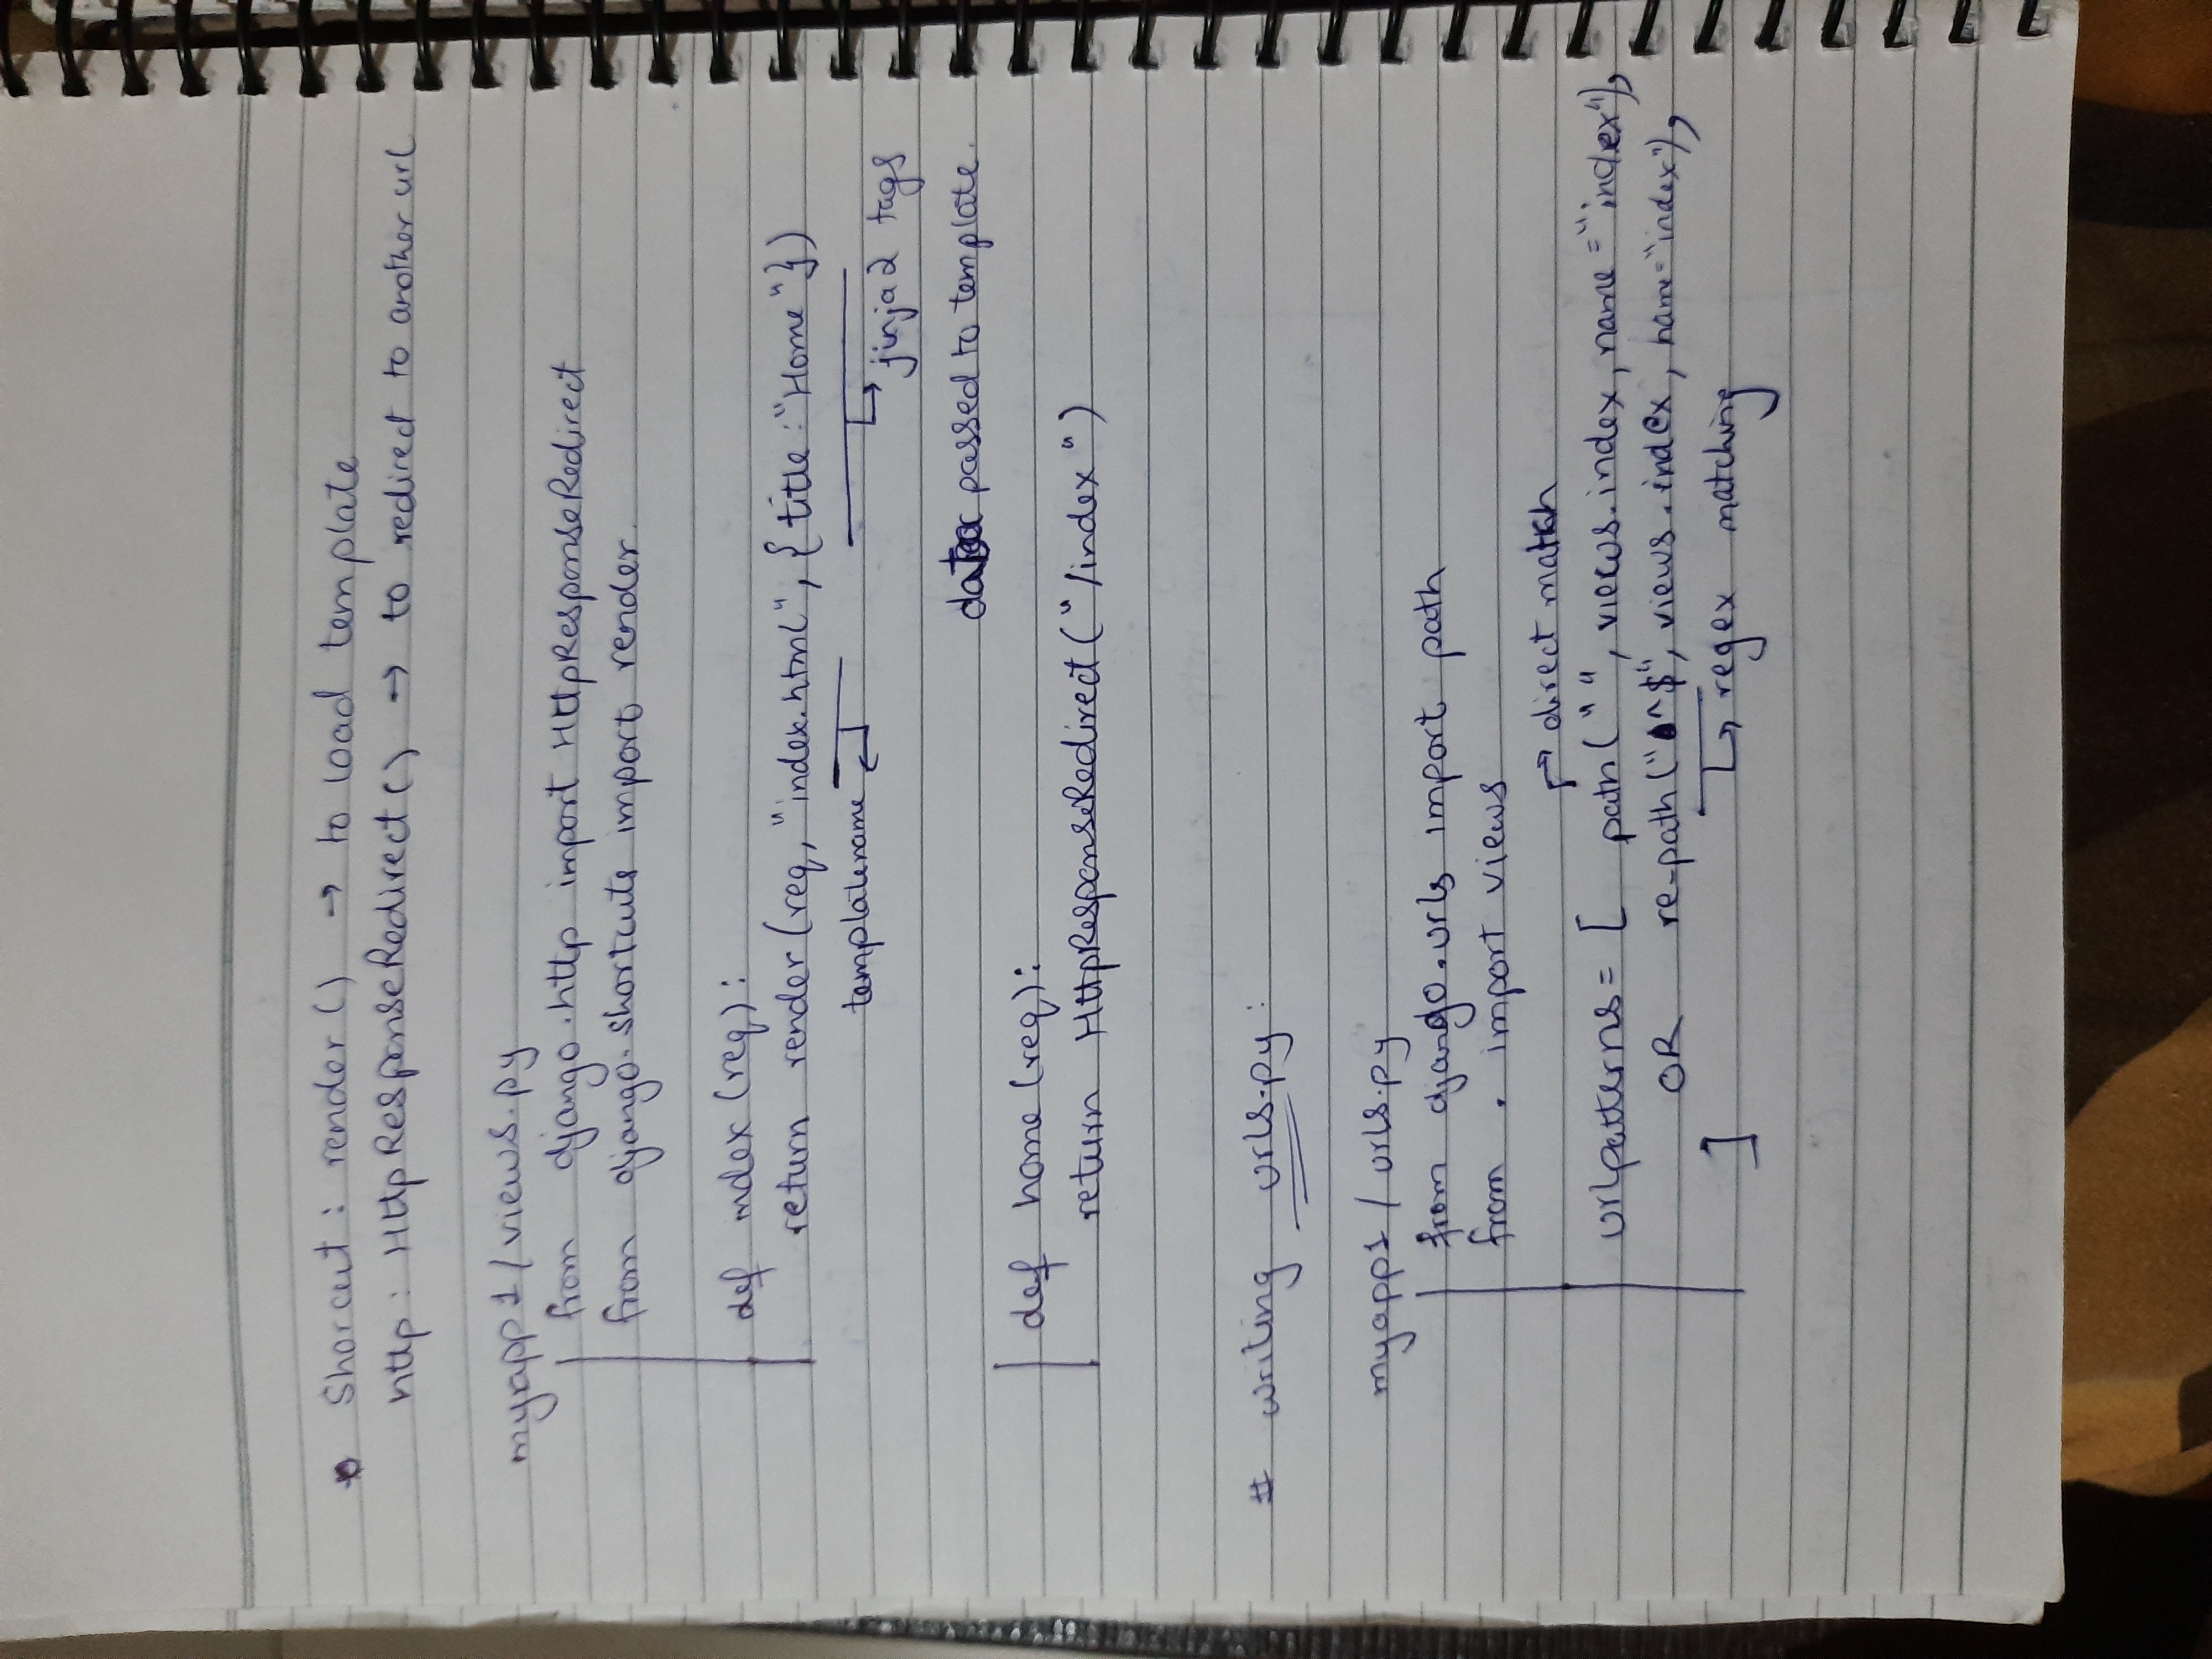 Shorcut : render() → to load template
http : HttpResponseRedirect() → to redirect to another url
myapp1/views.py
from django.http import HttpResponseRedirect
from django.shortcuts import render.
def index (req):
return render (req, "index.html", {title : "Home"})
templatename
jinja2 tags
data passed to template.
def home (req):
return HttpResponseRedirect("/index")
# writing urls.py :
myapp1 / urls.py
from django.urls import path
from . import views
direct match
urlpatterns = [ path( "", views.index, name = "index"),
OR re-path ("^$", views.index, name="index"),
regex matching
]